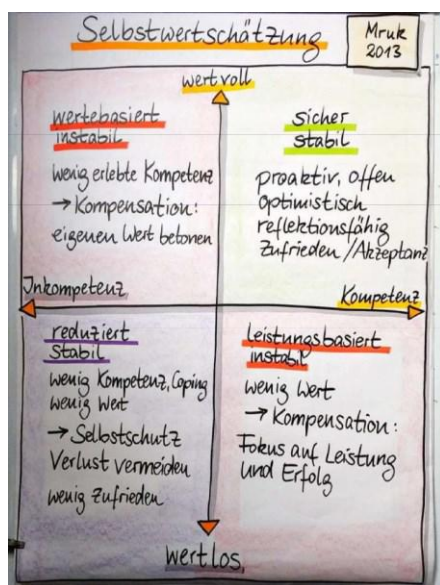 Selbstwertschätzung
Mruk
2013
wertvoll
wertebasiert
instabil
wenig erlebte Kompetenz
→ Kompensation:
eigenen Wert betonen
sicher
stabil
proaktiv, offen
optimistisch
reflektionsfähig
Zufrieden / Akzeptanz
Inkompetenz
Kompetenz
reduziert
stabil
wenig Kompetenz, Coping
wenig Wert
→ Selbstschutz
Verlust vermeiden
wenig zufrieden
leistungsbasiert
instabil
wenig Wert
→ Kompensation:
Fokus auf Leistung
und Erfolg
wertlos